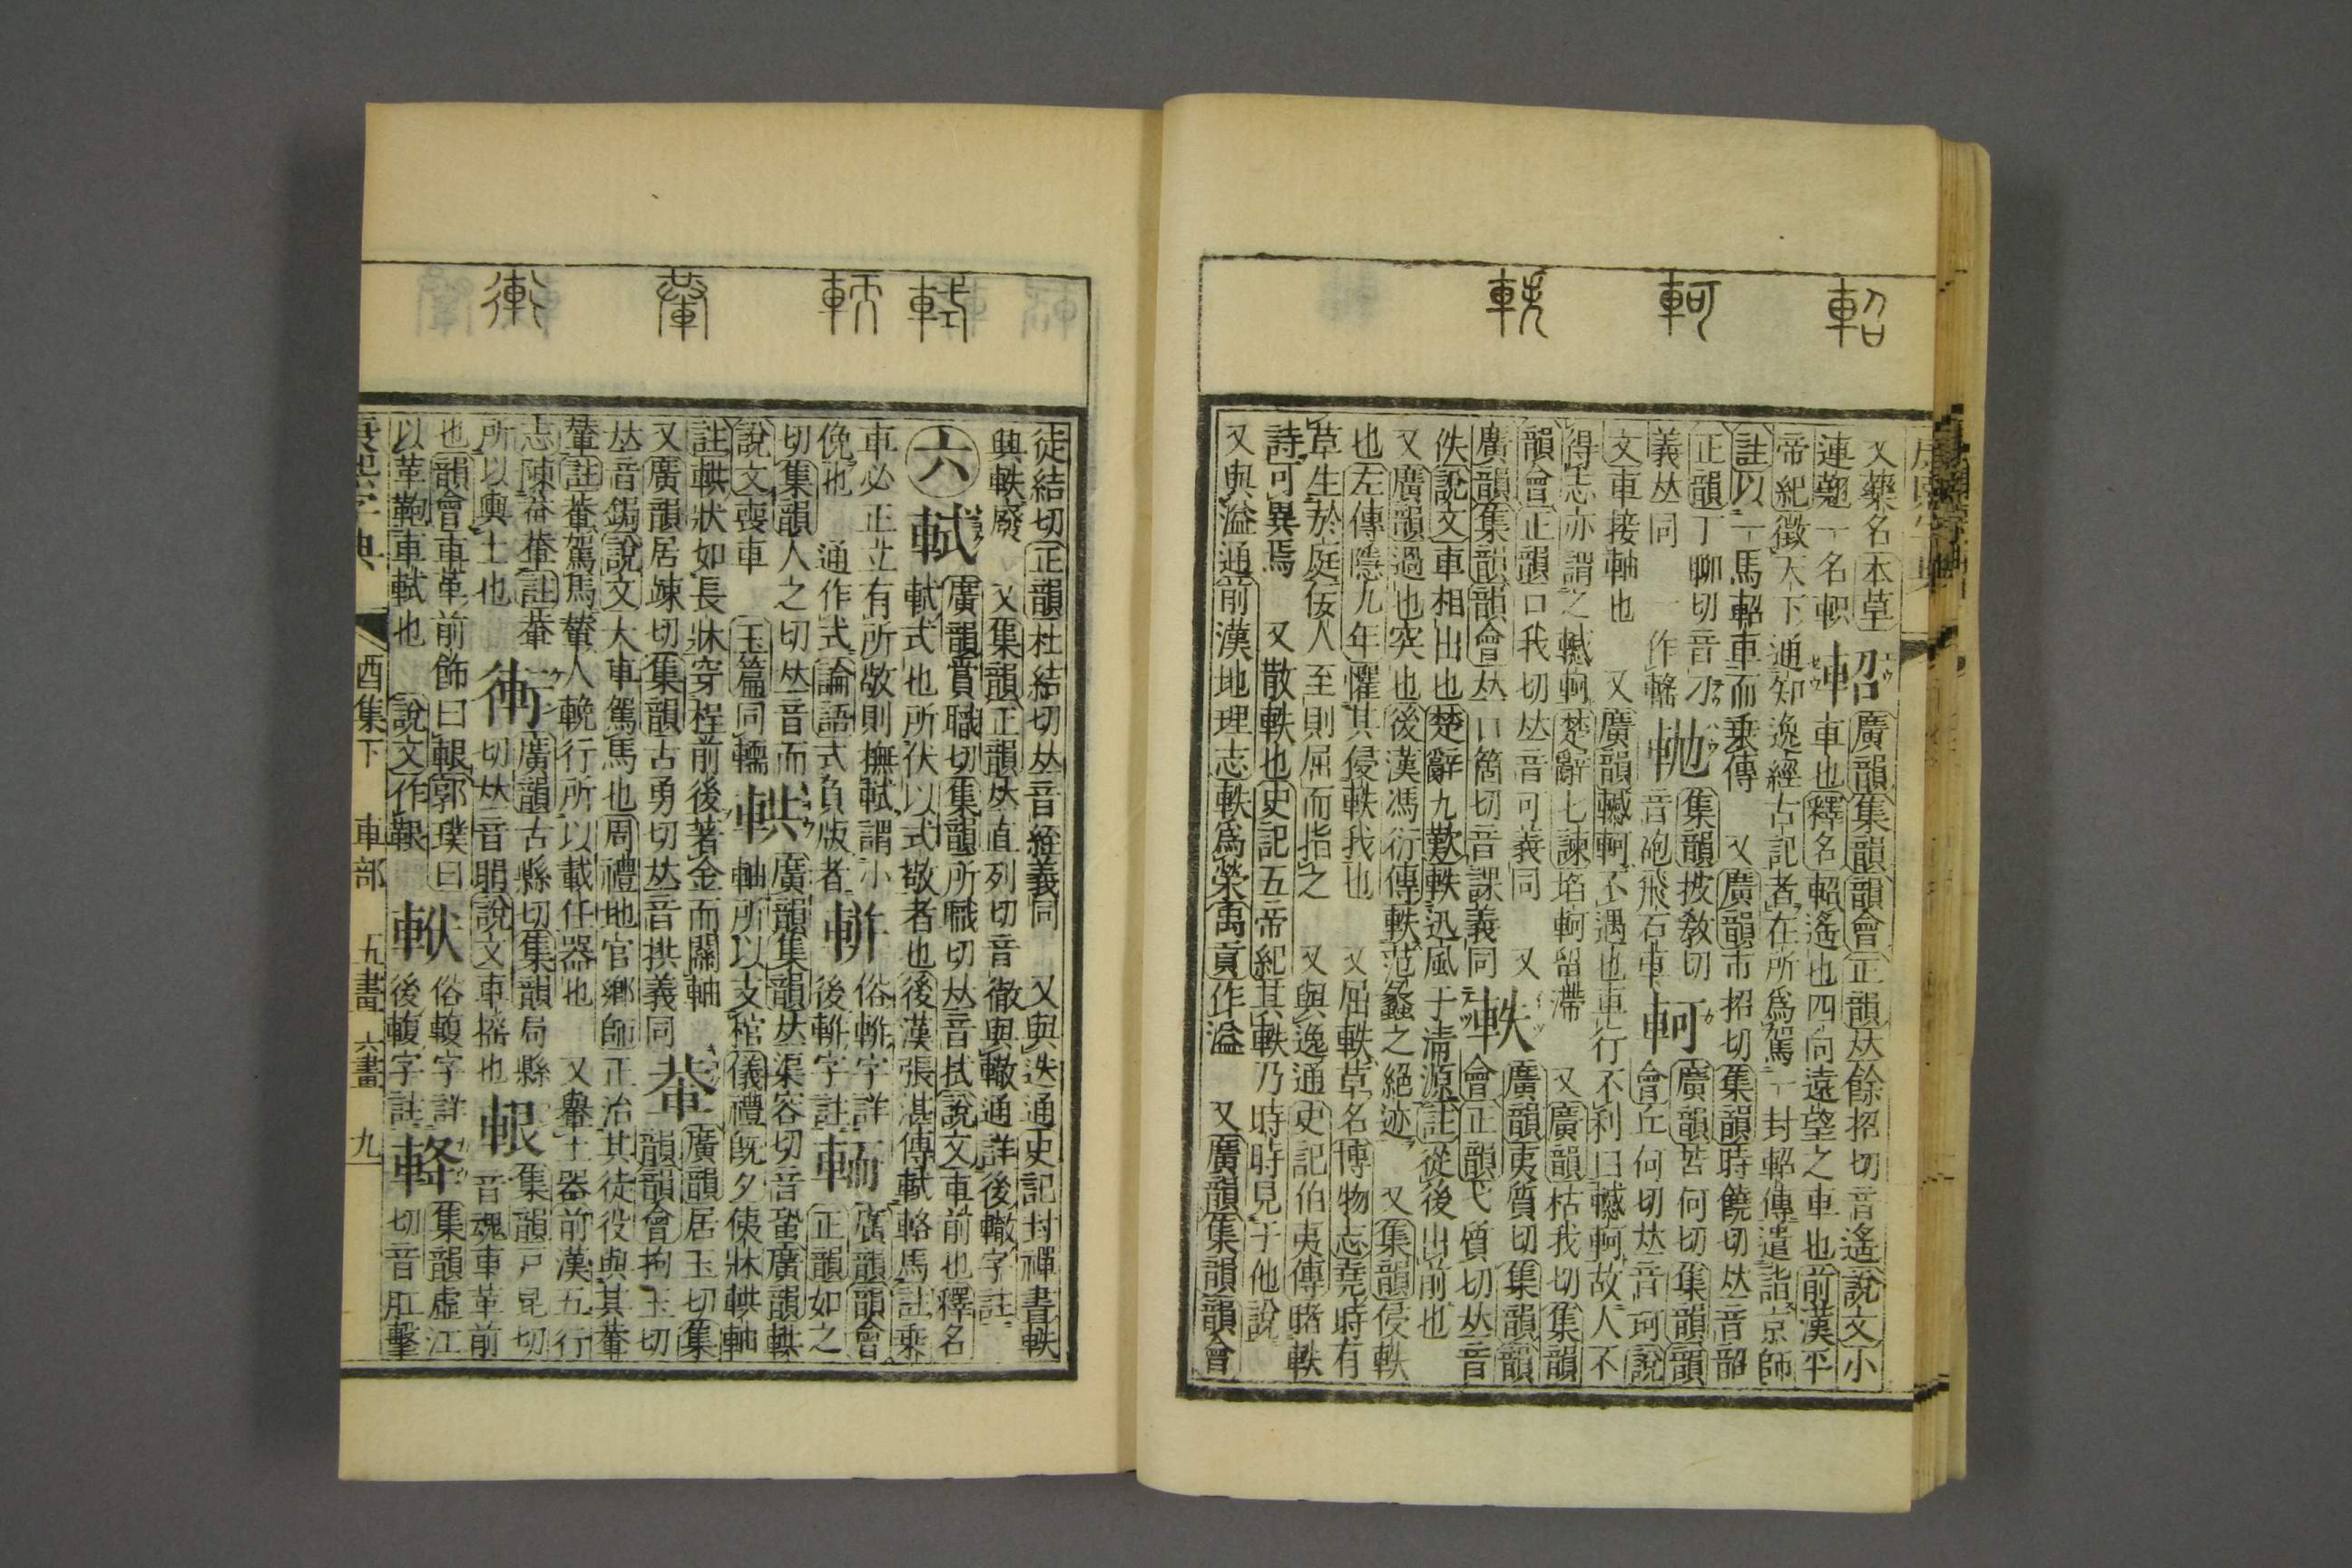 軺
軻
軼
又藥名本草 軺 廣韻集韻韻會正韻𠀤餘招切音遙說文小
連翹一名軹 車也釋名軺遙也四向遠望之車也前漢平
帝紀徵天下通知逸經古記者在所爲駕一封軺傳遣詣京師
註以一馬軺車而乗傳 又廣韻市招切集韻時饒切𠀤音韶
正韻丁聊切音刁 軳 集韻披敎切 軻 廣韻苦何切集韻韻
義𠀤同 一作轇 音砲飛石車 會丘何切𠀤音珂說
文車接軸也 又廣韻轗軻不遇也車行不利曰轗軻故人不
得志亦謂之轗軻楚辭七諫埳軻留滯 又廣韻枯我切集韻
韻會正韻口我切𠀤音可義同 又 軼 廣韻夷質切集韻韻
廣韻集韻韻會𠀤口箇切音課義同 會正韻弋質切𠀤音
佚說文車相出也楚辭九歎軼迅風于淸源註從後出前也
又廣韻過也突也後漢馮衍傳軼范蠡之絕迹 又集韻侵軼
也左傳隱九年懼其侵軼我也 又屈軼草名博物志堯時有
草生於庭佞人至則屈而指之 又與逸通史記伯夷傳睹軼
詩可異焉 又散軼也史記五帝紀其軼乃時時見于他說
又與溢通前漢地理志軼爲滎禹貢作溢 又廣韻集韻韻會
軾
輀
輂
徒結切正韻杜結切𠀤音絰義同 又與迭通史記封禪書軼
興軼廢 又集韻正韻𠀤直列切音徹與轍通詳後轍字註
六 軾 廣韻賞職切集韻所職切𠀤音拭說文車前也釋名
軾式也所伏以式敬者也後漢張湛傳軾輅馬註乗
車必正立有所敬則撫軾謂小 軿 俗輧字詳 輀 廣韻韻會
俛也 通作式論語式負版者 後輧字註 正韻如之
切集韻人之切𠀤音而 輁 廣韻集韻𠀤渠容切音蛩廣韻輁
說文喪車 玉篇同轜 軸所以支棺儀禮旣夕使牀輁軸
註輁狀如長牀穿桯前後著金而關軸 輂 廣韻居玉切集
又廣韻居竦切集韻古勇切𠀤音拱義同 韻韻會拘玉切
𠀤音鋦說文大車駕馬也周禮地官鄉師正治其徒役與其輂
輦註輂駕馬輦人輓行所以載任器也 又轝土器前漢五行
志陳畚輂註輂 廣韻古縣切集韻局縣 輥 集韻戸昆切
所以輿土也 切𠀤音睊說文車搖也 音魂車革前
也韻會車革前飾曰報郭璞曰 軑 俗輹字詳 㚅 集韻虛江
以革鞔車軾也 說文作鞎 後輹字註 切音肛擊
康熙字典 酉集下 車部 五畫 六畫 九